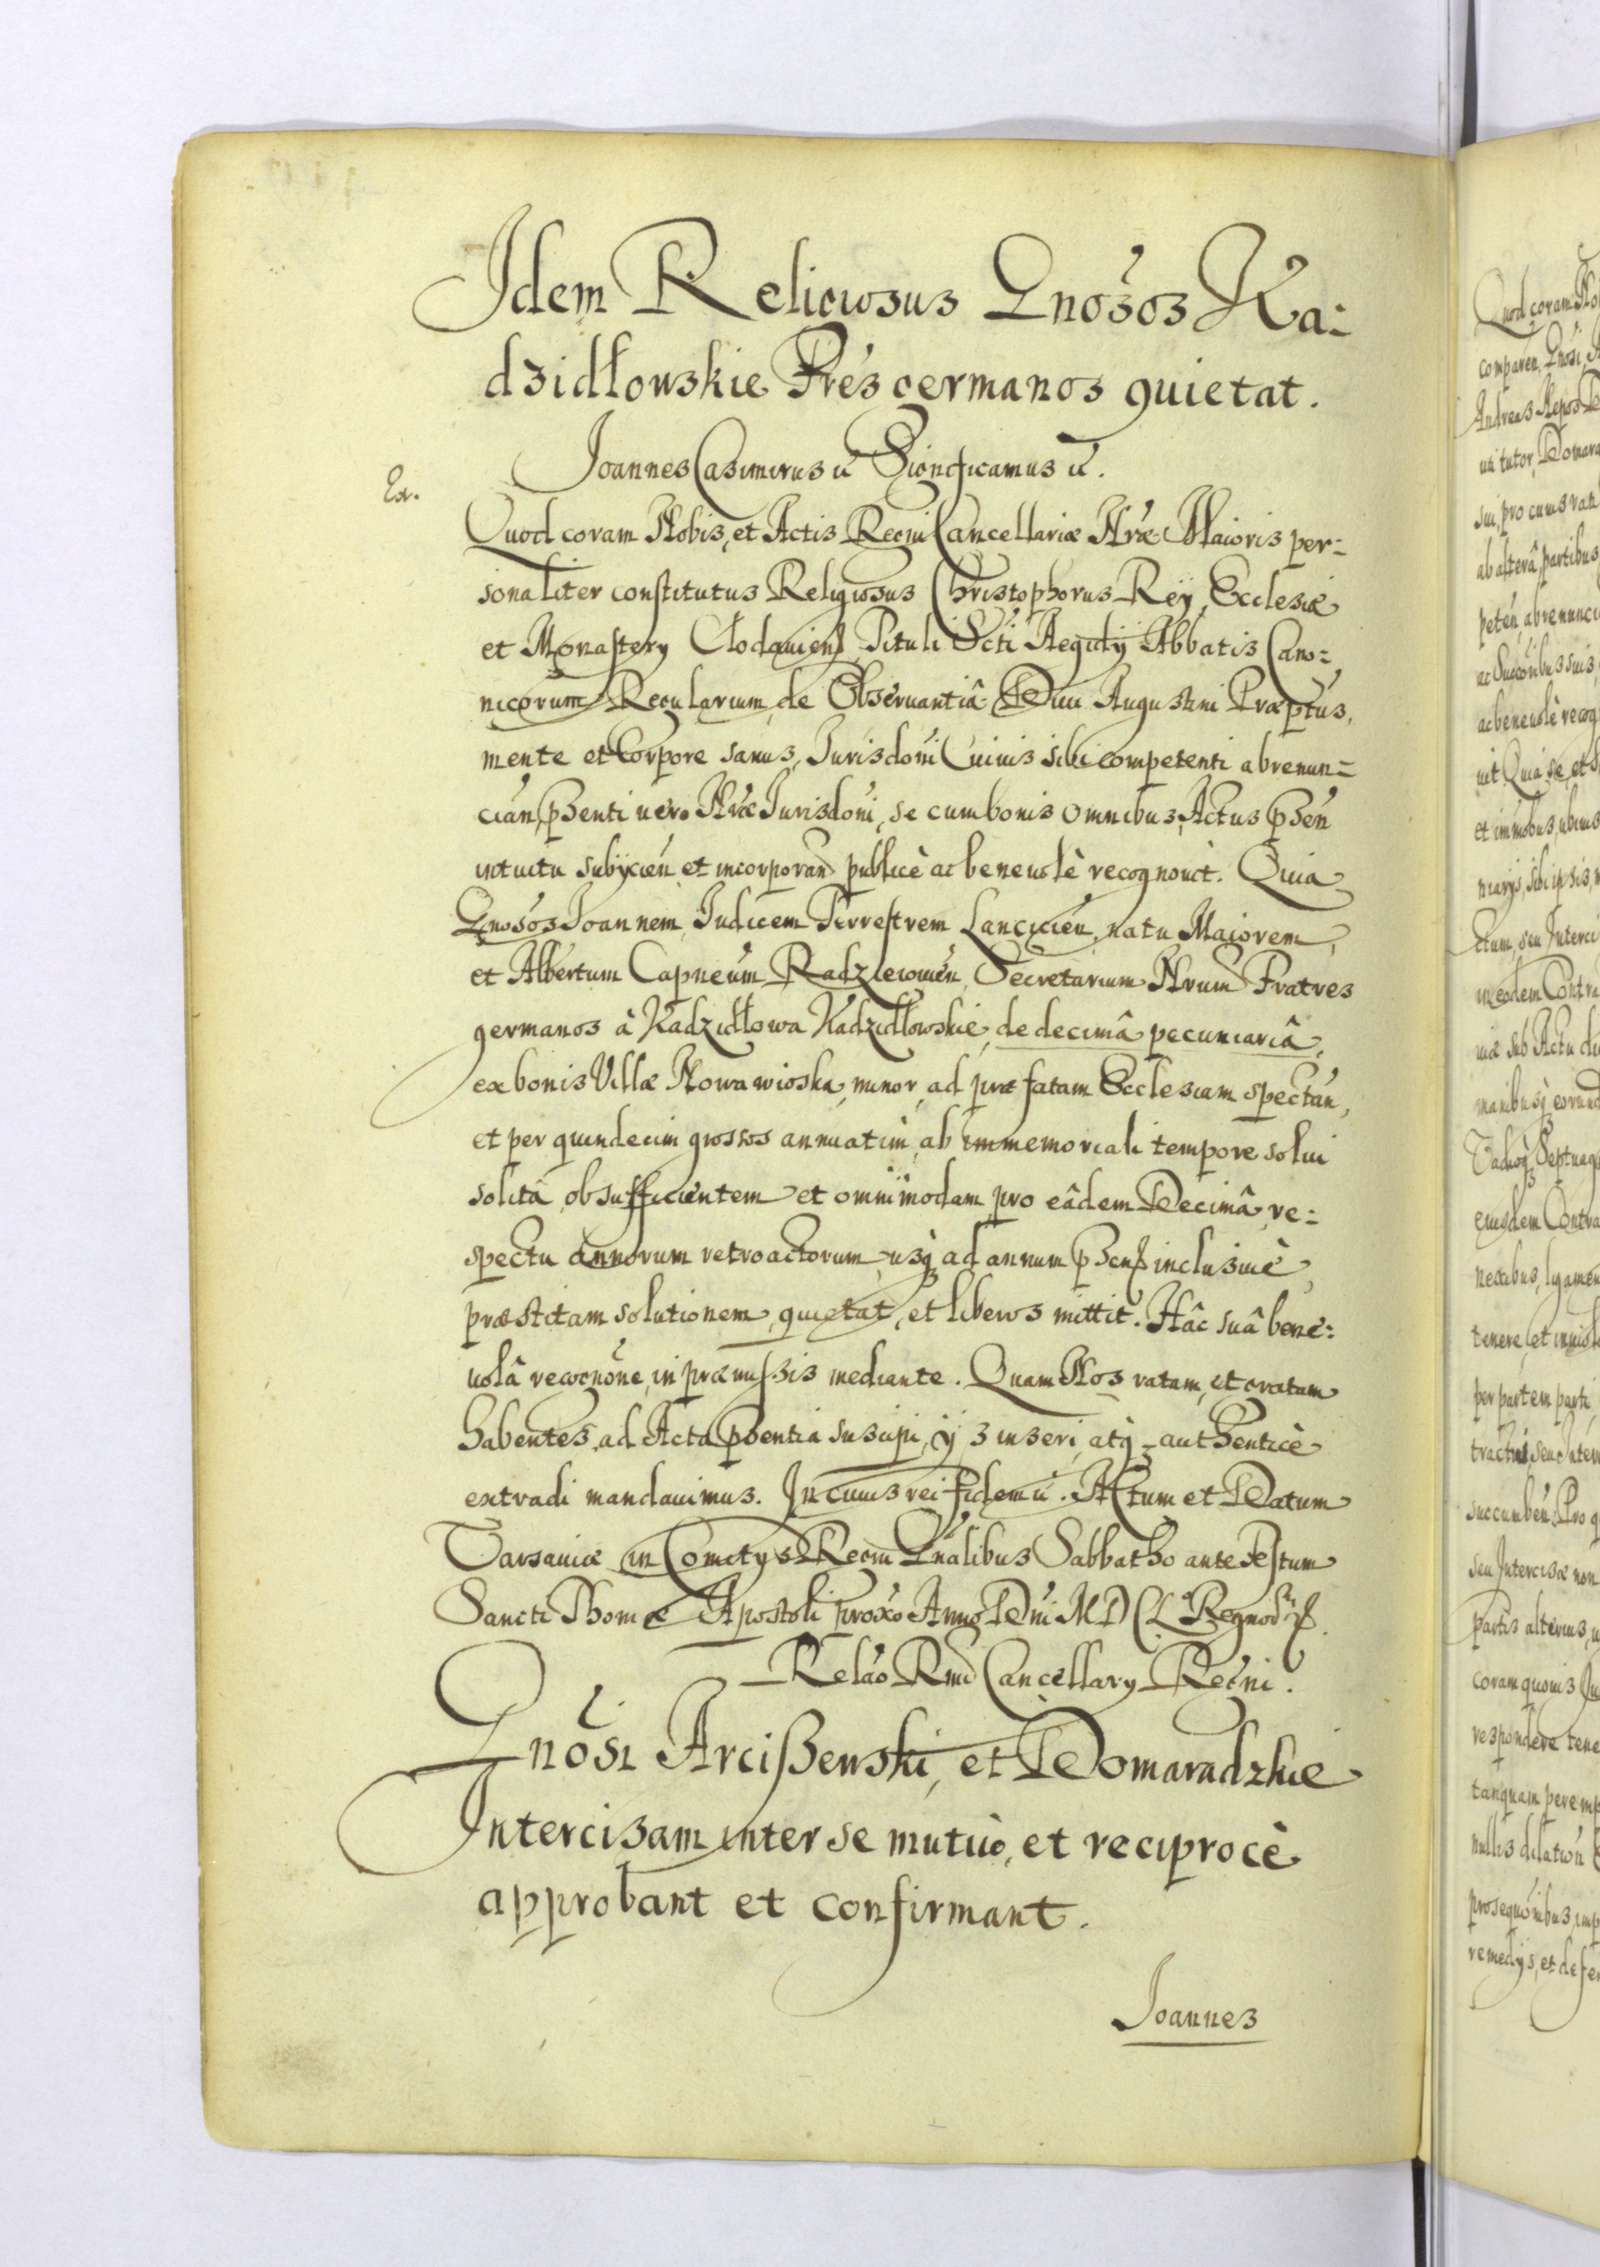 Idem Religiosus Gnôsos Ka=
dzidłowskie Frês germanos quietat.
Joannes Casimirus ű Significamus ű.
Ex.
Quod coram Nobis, et Actis Regni Cancellariæ Nræ Maioris per=
sonaliter constitutus Religiosus Christophorus Rey, Ecclesiæ
et Monastery Clodauiens Tituli Scti Aegidÿ Abbatis Cano=
nicorum Regularium de Obseruantiâ Diui Augustini Præptus,
mente et Corpore sanus, Jurisdoni Cuiuis sibi competenti abrenun=
cian, pzenti uero Nræ Jurisdoni, se cum bonis omnibus, Actus pzen
intuitu subÿcien et incorporand publicè ac beneuolè recognouit. Quia
Gnosos Joannem Judicem Terrestrem Lancicien, natu Maiorem,
et Albertum Capneum Radzieiouien, Secretarium Nrum Fratres
germanos à Kadzidłowa Kadzidłowskie, de decimâ pecuniariâ,
ex bonis Villæ Nowawioska, minor, ad præfatam Ecclesiam spectan,
et per quindecim grossos annuatim, ab immemoriali tempore solui
solitâ, ob sufficientem et omnimodam, pro eâdem Decimâ, re=
spectu annorum retroactorum, usq ad annum pzens inclusiuè,
præstitam solutionem, quietat, et liberos mittit. Hâc suâ bene=
uolâ recognone, in præmissis mediante. Quam Nos ratam, et gratam
habentes, ad Acta pzentia suscipi, ÿs inseri, atq authenticè
extradi mandauimus. In cuius rei fidem ű. Actum et Datum
Varsauiæ in Comitÿs Regni Gnalibus Sabbatho ante Festum
Sancti Thomæ Apostoli proxo Anno Dni MDCL Regnor
Relão Rmi Cancellary Regni.
Gnôsi Arcißewski, et Domaradzkie
Intercisam inter se mutuò, et reciprocè
approbant et confirmant.
Joannes
Quod coram
comparen Gnosi
Andreas Nepos
uti tutor, Domara
sui, pro cuius rati
ab alterâ partibus
peten, abrenuncia
ac Succoribus suis
ac beneuolè recog
uit. Quia se, et
et immobus, ubiuis
ctum, seu Interci
in eodem Contra
uiæ sub Actu di
manibusq eorund
eiusdem Contra
nexibus, ligamen
tenere, et inuiol
per partem parti
succumben. Pro q
seu Intercisæ non
partis alterius, u
coram quouis Ju
respondere tene
tanquam peremp
nullis dilation
prosequonibus, imp
remedÿs, et defen